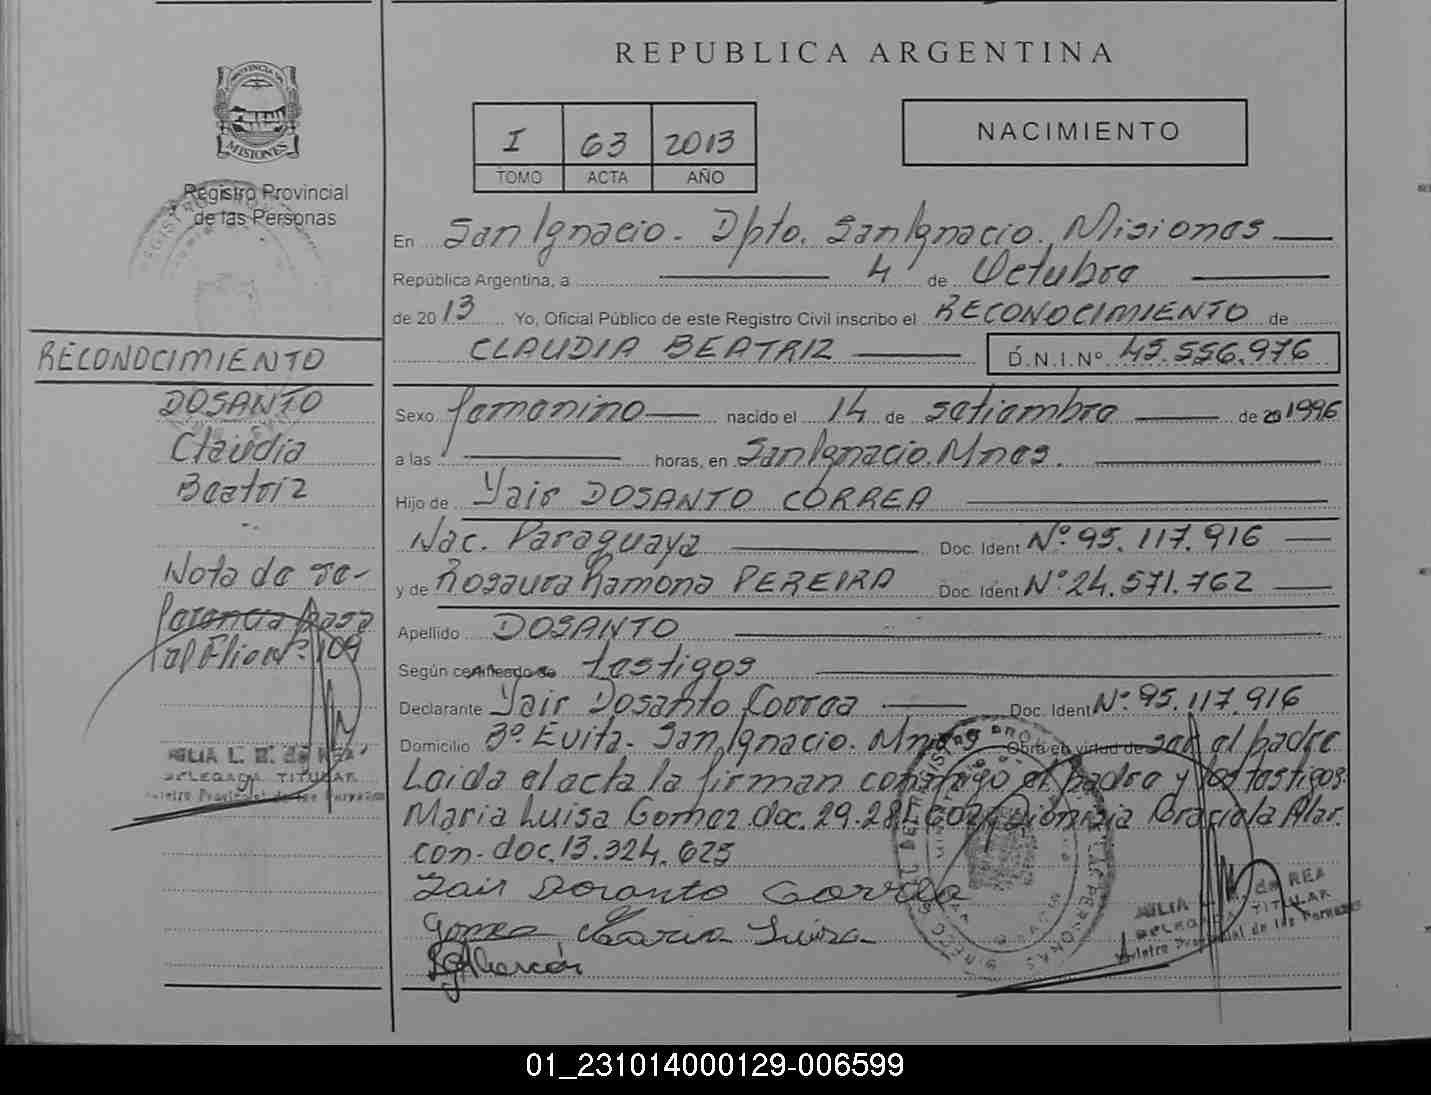 REPUBLICA ARGENTINA
PROVINCIA DE
MISIONES
Registro Provincial
de las Personas
I 63 2013
TOMO ACTA AÑO
NACIMIENTO
En San Ignacio. Dpto. San Ignacio. Misiones
República Argentina, a 4 de Octubre
de 2013 Yo, Oficial Público de este Registro Civil inscribo el RECONOCIMIENTO de
CLAUDIA BEATRIZ D.N.I.Nº 45.556.976
Sexo femenino nacido el 14 de setiembre de 1996
a las horas, en San Ignacio. Mnes.
Hijo de Yair DOSANTO CORREA
Nac. Paraguaya Doc. Ident Nº 95.117.916
y de Rosaura Ramona PEREIRA Doc. Ident Nº 24.571.762
Apellido DOSANTO
Según certificado de testigos
Declarante Yair Dosanto Correa Doc. Ident Nº 95.117.916
Domicilio Bº Evita. San Ignacio. Mnes Obra en virtud de ser el padre
Leida el acta la firman conmigo el padre y los testigos.
Maria Luisa Gomez doc. 29.281.602 Dionisia Graciela Alar-
con. doc. 13.324.625
Yair Dosanto Correa
Gomez Maria Luisa
Alarcón
RECONOCIMIENTO
DOSANTO
Claudia
Beatriz
Nota de re-
ferencia pasa
al Flio Nº 109
JULIA L. B. de REA
DELEGADA TITULAR
Registro Provincial de las Personas
JULIA L. B. de REA
DELEGADA TITULAR
Registro Provincial de las Personas
01_231014000129-006599